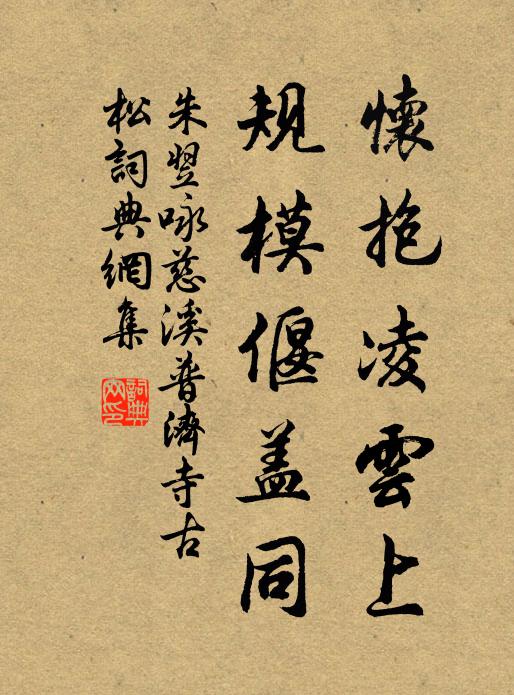 懷抱凌雲上
規模偃蓋同
朱翌咏慈溪普濟寺古
松詞典網集
詞典網印